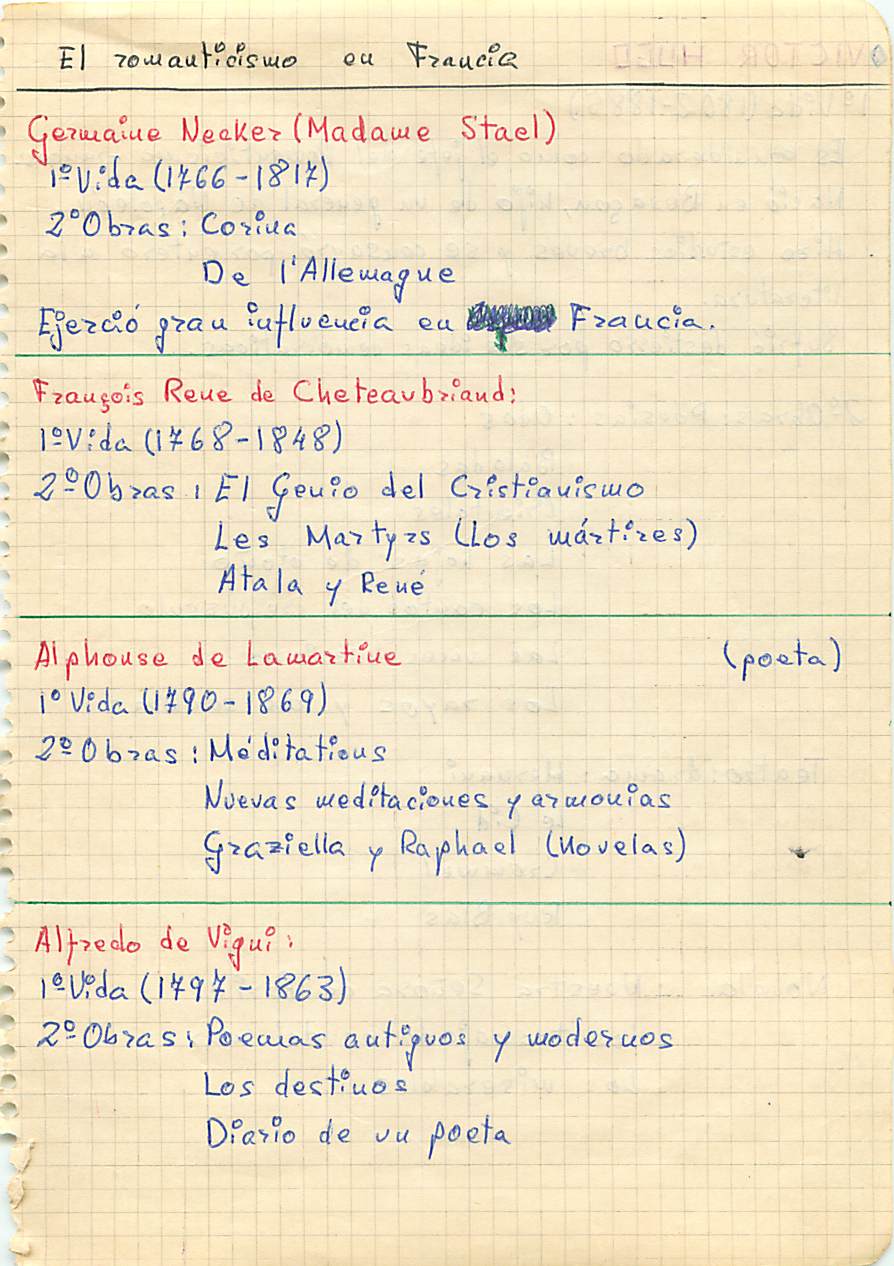 El romanticismo en Francia
Germaine Necker (Madame Stael)
1º Vida (1766-1817)
2º Obras: Corina
De l'Allemagne
Ejerció gran influencia en Francia.
François Rene de Cheteaubriand:
1º Vida (1768-1848)
2º Obras: El Genio del Cristianismo
Les Martyrs (Los mártires)
Atala y René
Alphonse de Lamartine (poeta)
1º Vida (1790-1869)
2º Obras: Méditations
Nuevas meditaciones y armonias
Graziella y Raphael (Novelas)
Alfredo de Vigni:
1º Vida (1797-1863)
2º Obras: Poemas antiguos y modernos
Los destinos
Diario de un poeta